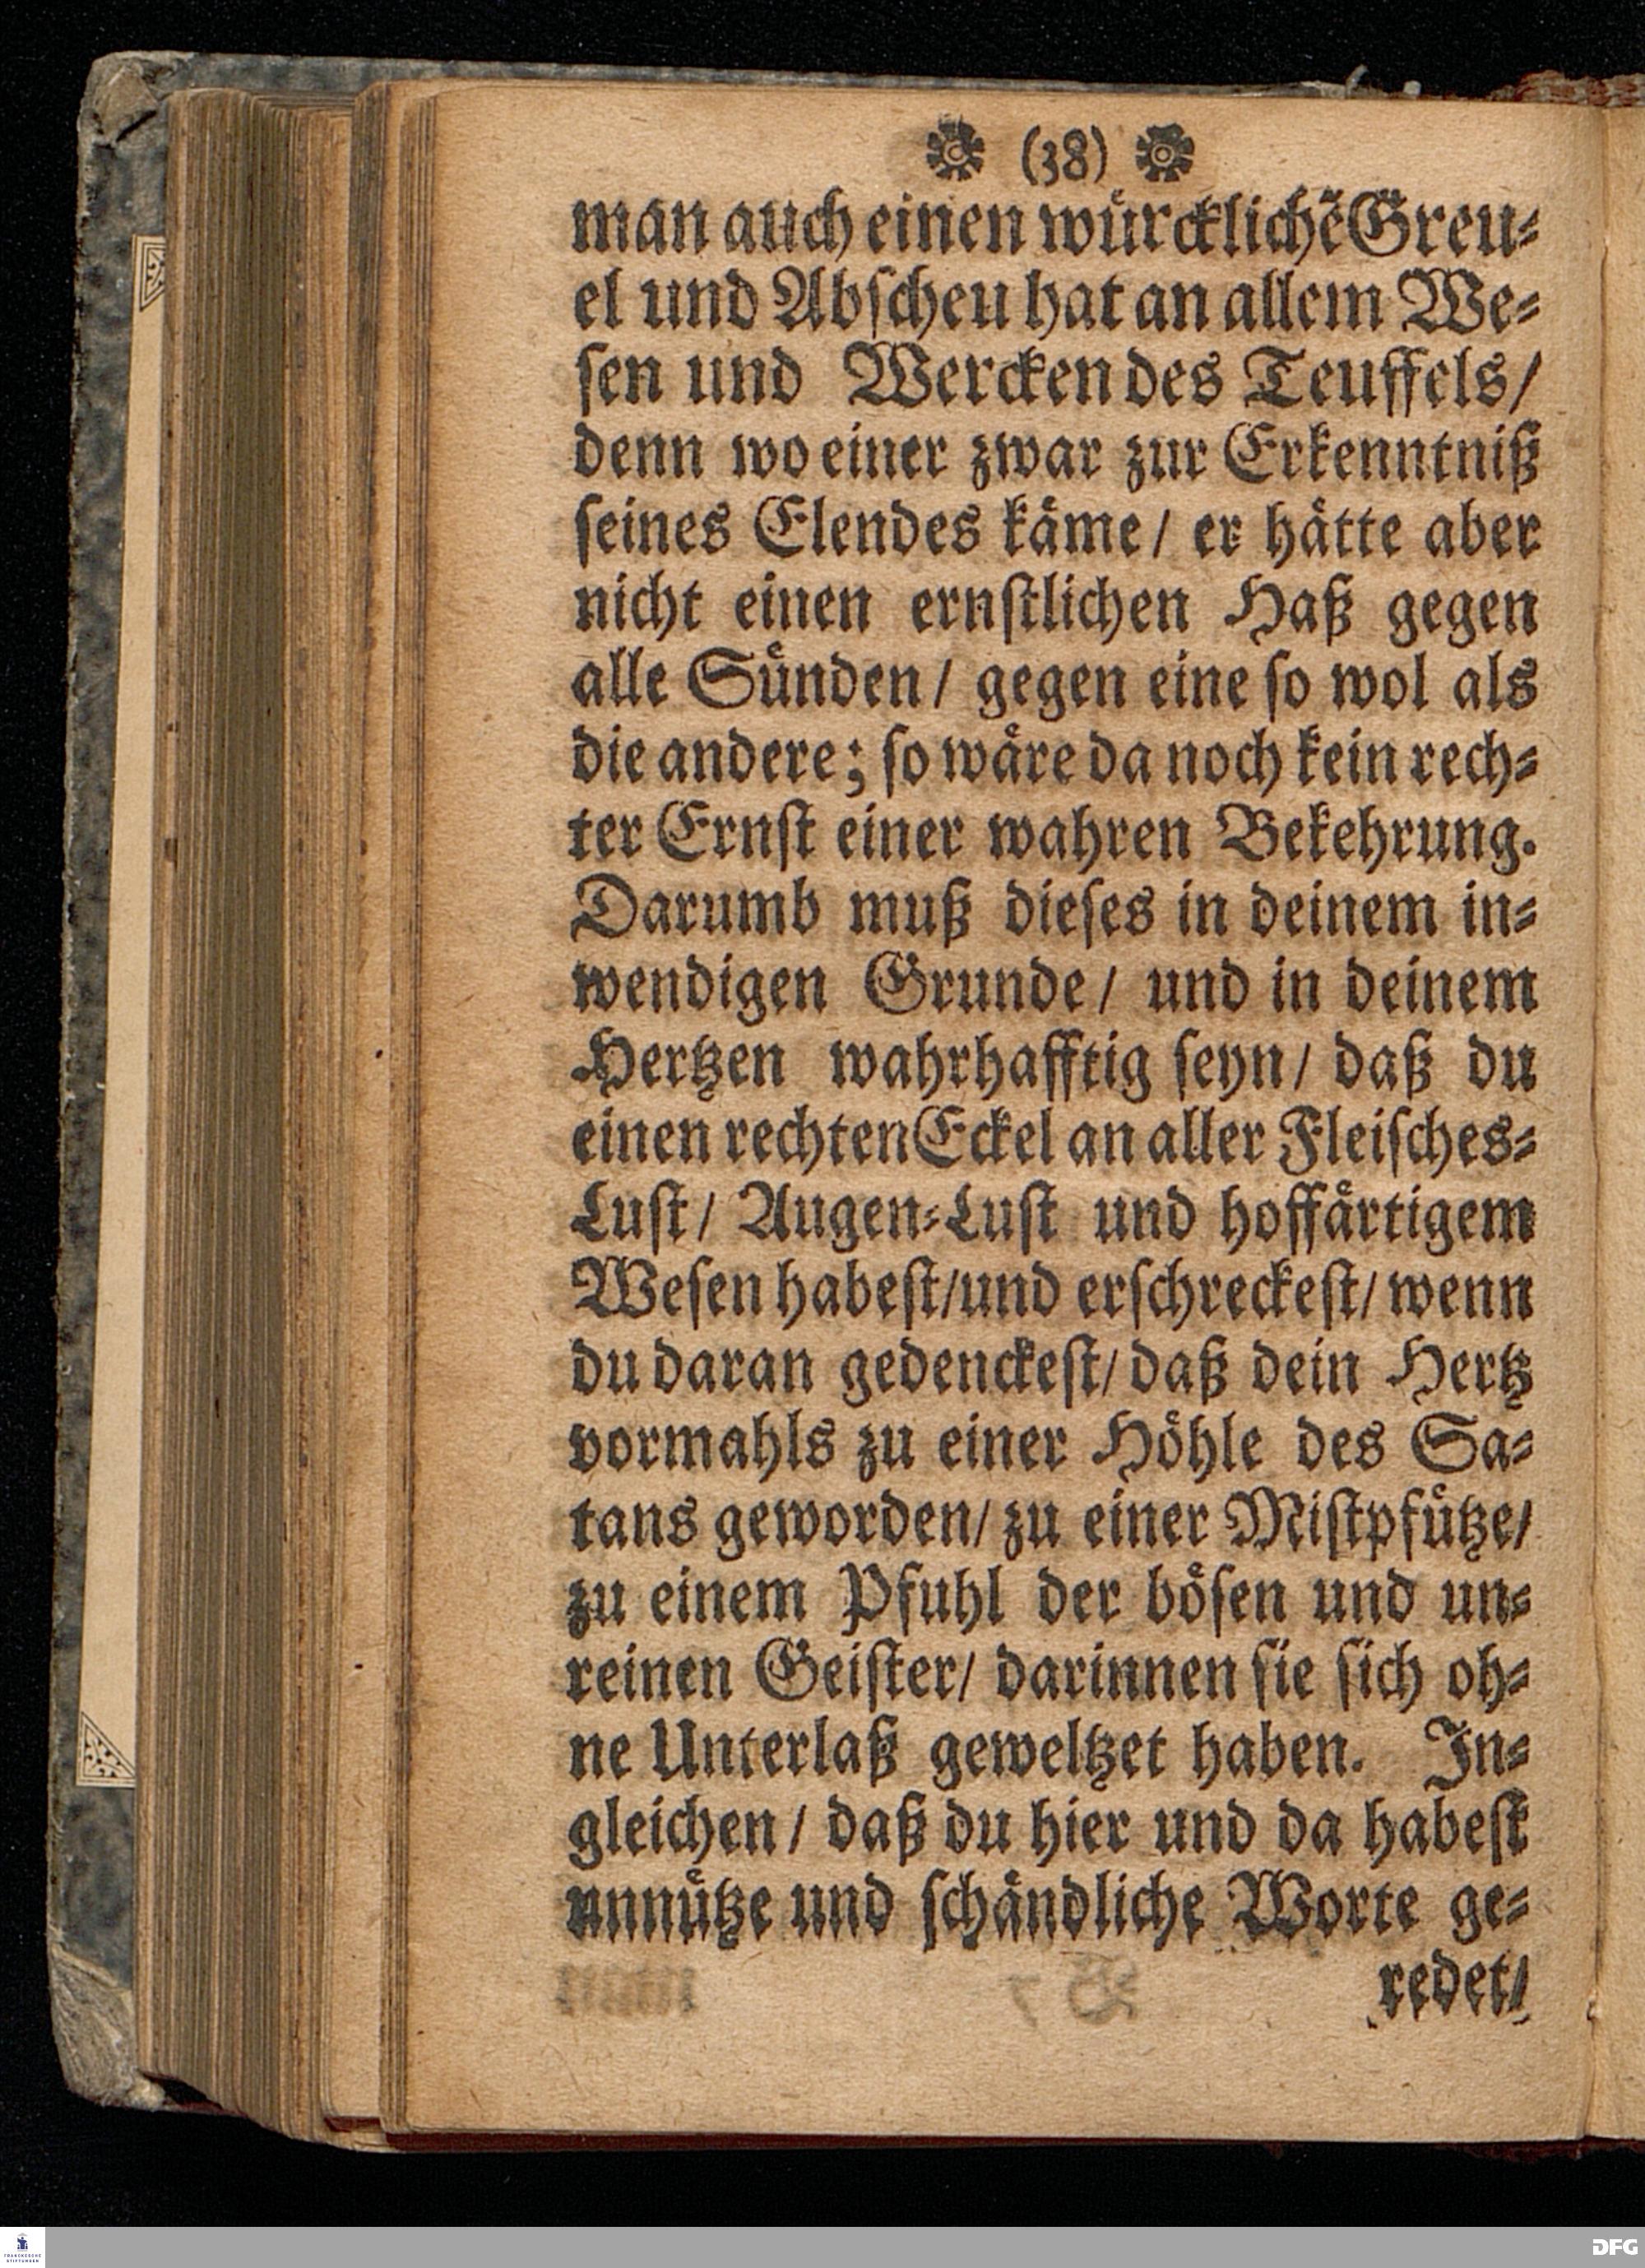 (38)
man auch einen würcklichẽ Greu-
el und Abscheu hat an allem We-
sen und Wercken des Teuffels/
denn wo einer zwar zur Erkenntniß
seines Elendes käme/ er hätte aber
nicht einen ernstlichen Haß gegen
alle Sünden/ gegen eine so wol als
die andere; so wäre da noch kein rech-
ter Ernst einer wahren Bekehrung.
Darumb muß dieses in deinem in-
wendigen Grunde/ und in deinem
Hertzen wahrhafftig seyn/ daß du
einen rechten Eckel an aller Fleisches-
Lust/ Augen-Lust und hoffärtigem
Wesen habest/und erschreckest/ wenn
du daran gedenckest/ daß dein Hertz
vormahls zu einer Höhle des Sa-
tans geworden/ zu einer Mistpfütze/
zu einem Pfuhl der bösen und un-
reinen Geister/ darinnen sie sich oh-
ne Unterlaß geweltzet haben. In-
gleichen/ daß du hier und da habest
unnütze und schändliche Worte ge-
redet/
FRANCKESCHE
STIFTUNGEN
DFG